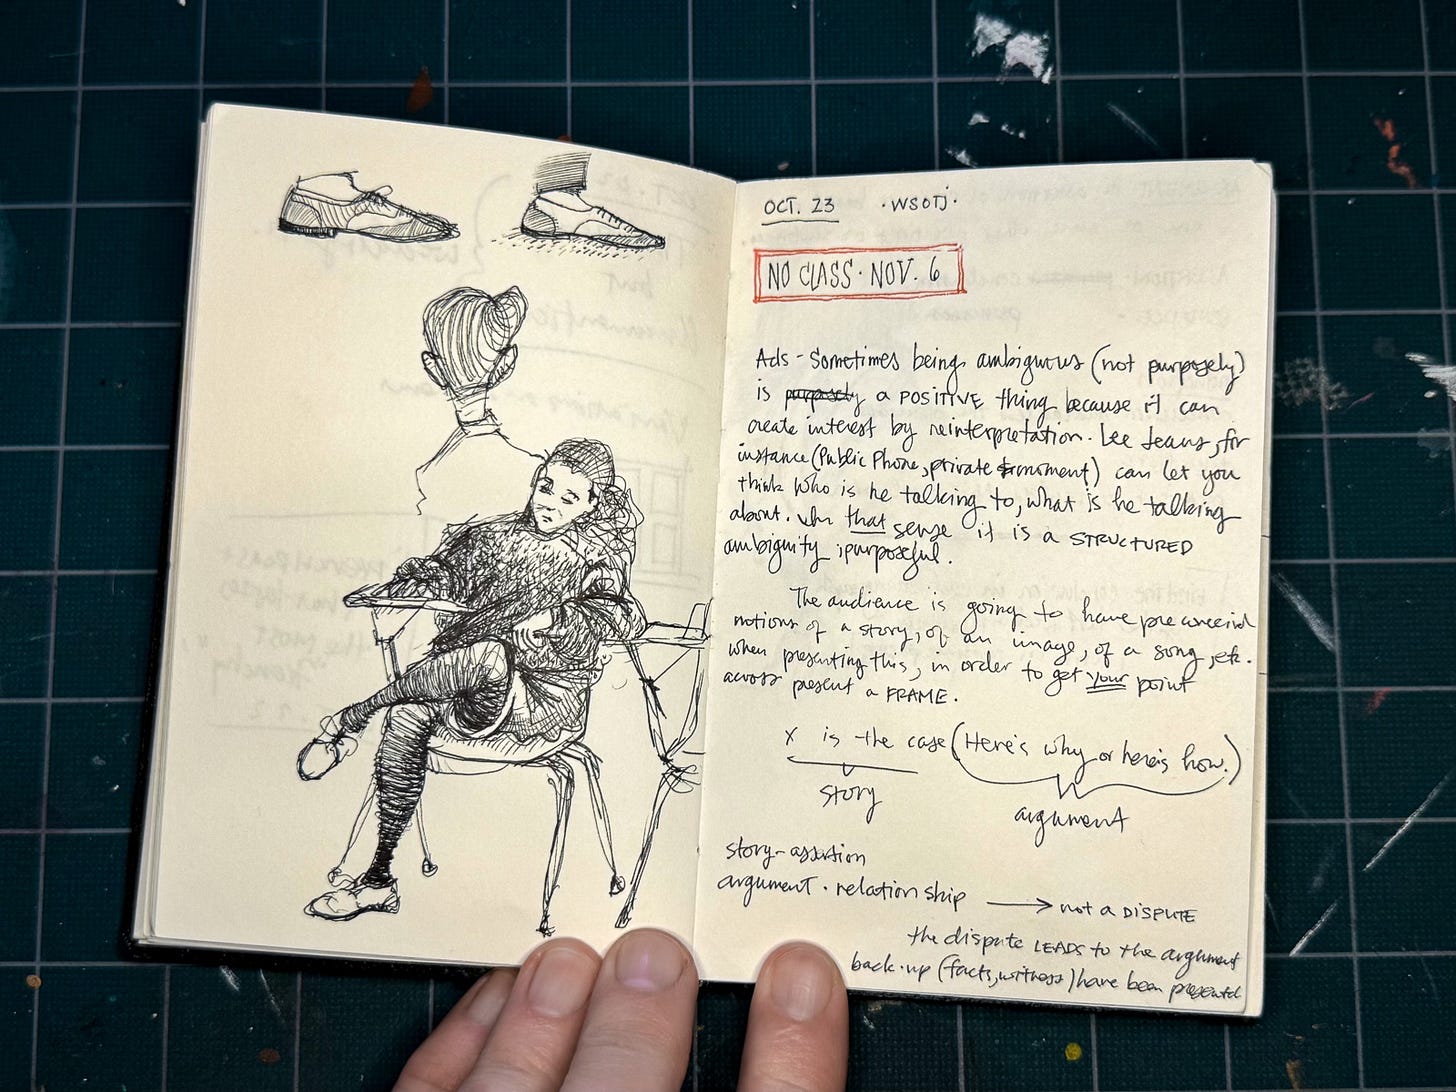 OCT. 23 · WSOTJ ·
NO CLASS · NOV. 6
Ads - Sometimes being ambiguous (not purposely)
is purposely a POSITIVE thing because it can
create interest by reinterpretation. Lee Jeans, for
instance (Public Phone, private ) can let you
think who is he talking to, what is he talking
about. In that sense it is a STRUCTURED
ambiguity purposeful.
The audience is going to have preconceived
notions of a story, of an image, of a song, etc.
when presenting this, in order to get your point
across present a FRAME.
X is the case (Here's why or here's how.)
story
argument
story - assertion
argument · relationship → not a DISPUTE
the dispute LEADS to the argument
back-up (facts, witness) have been presented